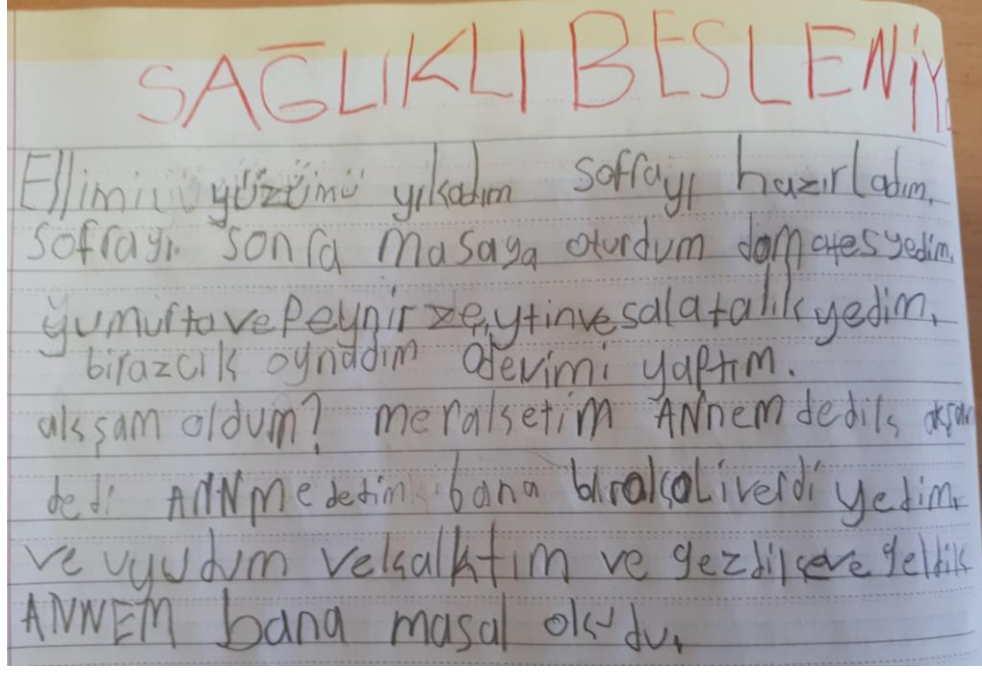 SAĞLIKLI BESLENİY
Ellimi yüzümü yıkadım soffayı hazırladım.
Sofrayı sonra masaga oturdum domates yedim.
yumurta ve Peynir zeytin ve salatalık yedim.
birazcık oynadım ödevimi yaptım.
akşam oldum? meraksetim ANnem dediks akşam
dedi ANNme detim bana bırakoli verdi yedim.
ve uyudum ve kalktım ve gezdik eve geldik
ANNEM bana masal okudu.